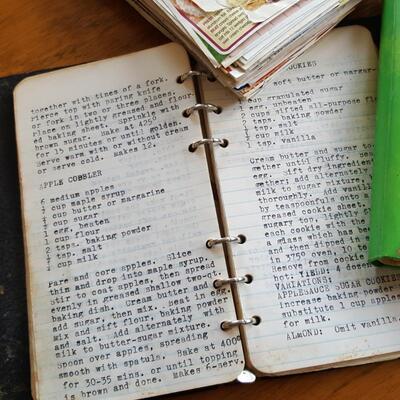 together with tines of a fork.
Pierce top with paring knife
of fork in two or three places.
Place on lightly greased and flour-
ed baking sheet. Sprinkle with
brown sugar. Bake at 425°
for 15 minutes or until golden.
Serve warm with or without cream
or serve cold. makes 12.
APPLE COBBLER
6 medium apples
cup maple syrup
cup butter or margarine
cup sugar
egg, beaten
cup flour
2 tsps. baking powder
tsp. salt
cup milk
Pare and core apples. Slice
thin and drop into maple syrup.
Stir to coat apples, then spread
evenly in greased shallow two-qt.
baking dish. Cream butter and
add sugar, then mix. Beat in egg.
Mix and sift flour, baking powder
and salt. Add alternately with
milk to butter-sugar mixture.
Spoon over apples, spreading
smooth with spatula. Bake at 400°
for 30-35 mins. or until topping
is brown and done. Makes 6-serv.
COOKIES
soft butter or margar-
granulated sugar
egg, unbeaten
cups sifted all-purpose
tsps. baking powder
tsp.
cup milk
1 tsp. vanilla
Cream butter and sugar to-
gether until fluffy.
egg. Sift dry ingredients
gether; add alternately
milk to sugar mixture,
thoroughly. Add vanilla
by teaspoonfuls onto
greased cookie sheet
sugar top, lightly
each cookie with the
a glass which has
and then dipped in
375° oven, 10
Remove from cookie
hot. YIELD: 4 dozen
VARIATIONS:
APPLESAUCE SUGAR COOKIES
increase baking powder
substitute 1 cup apples
for milk.
ALMOND: Omit vanilla,